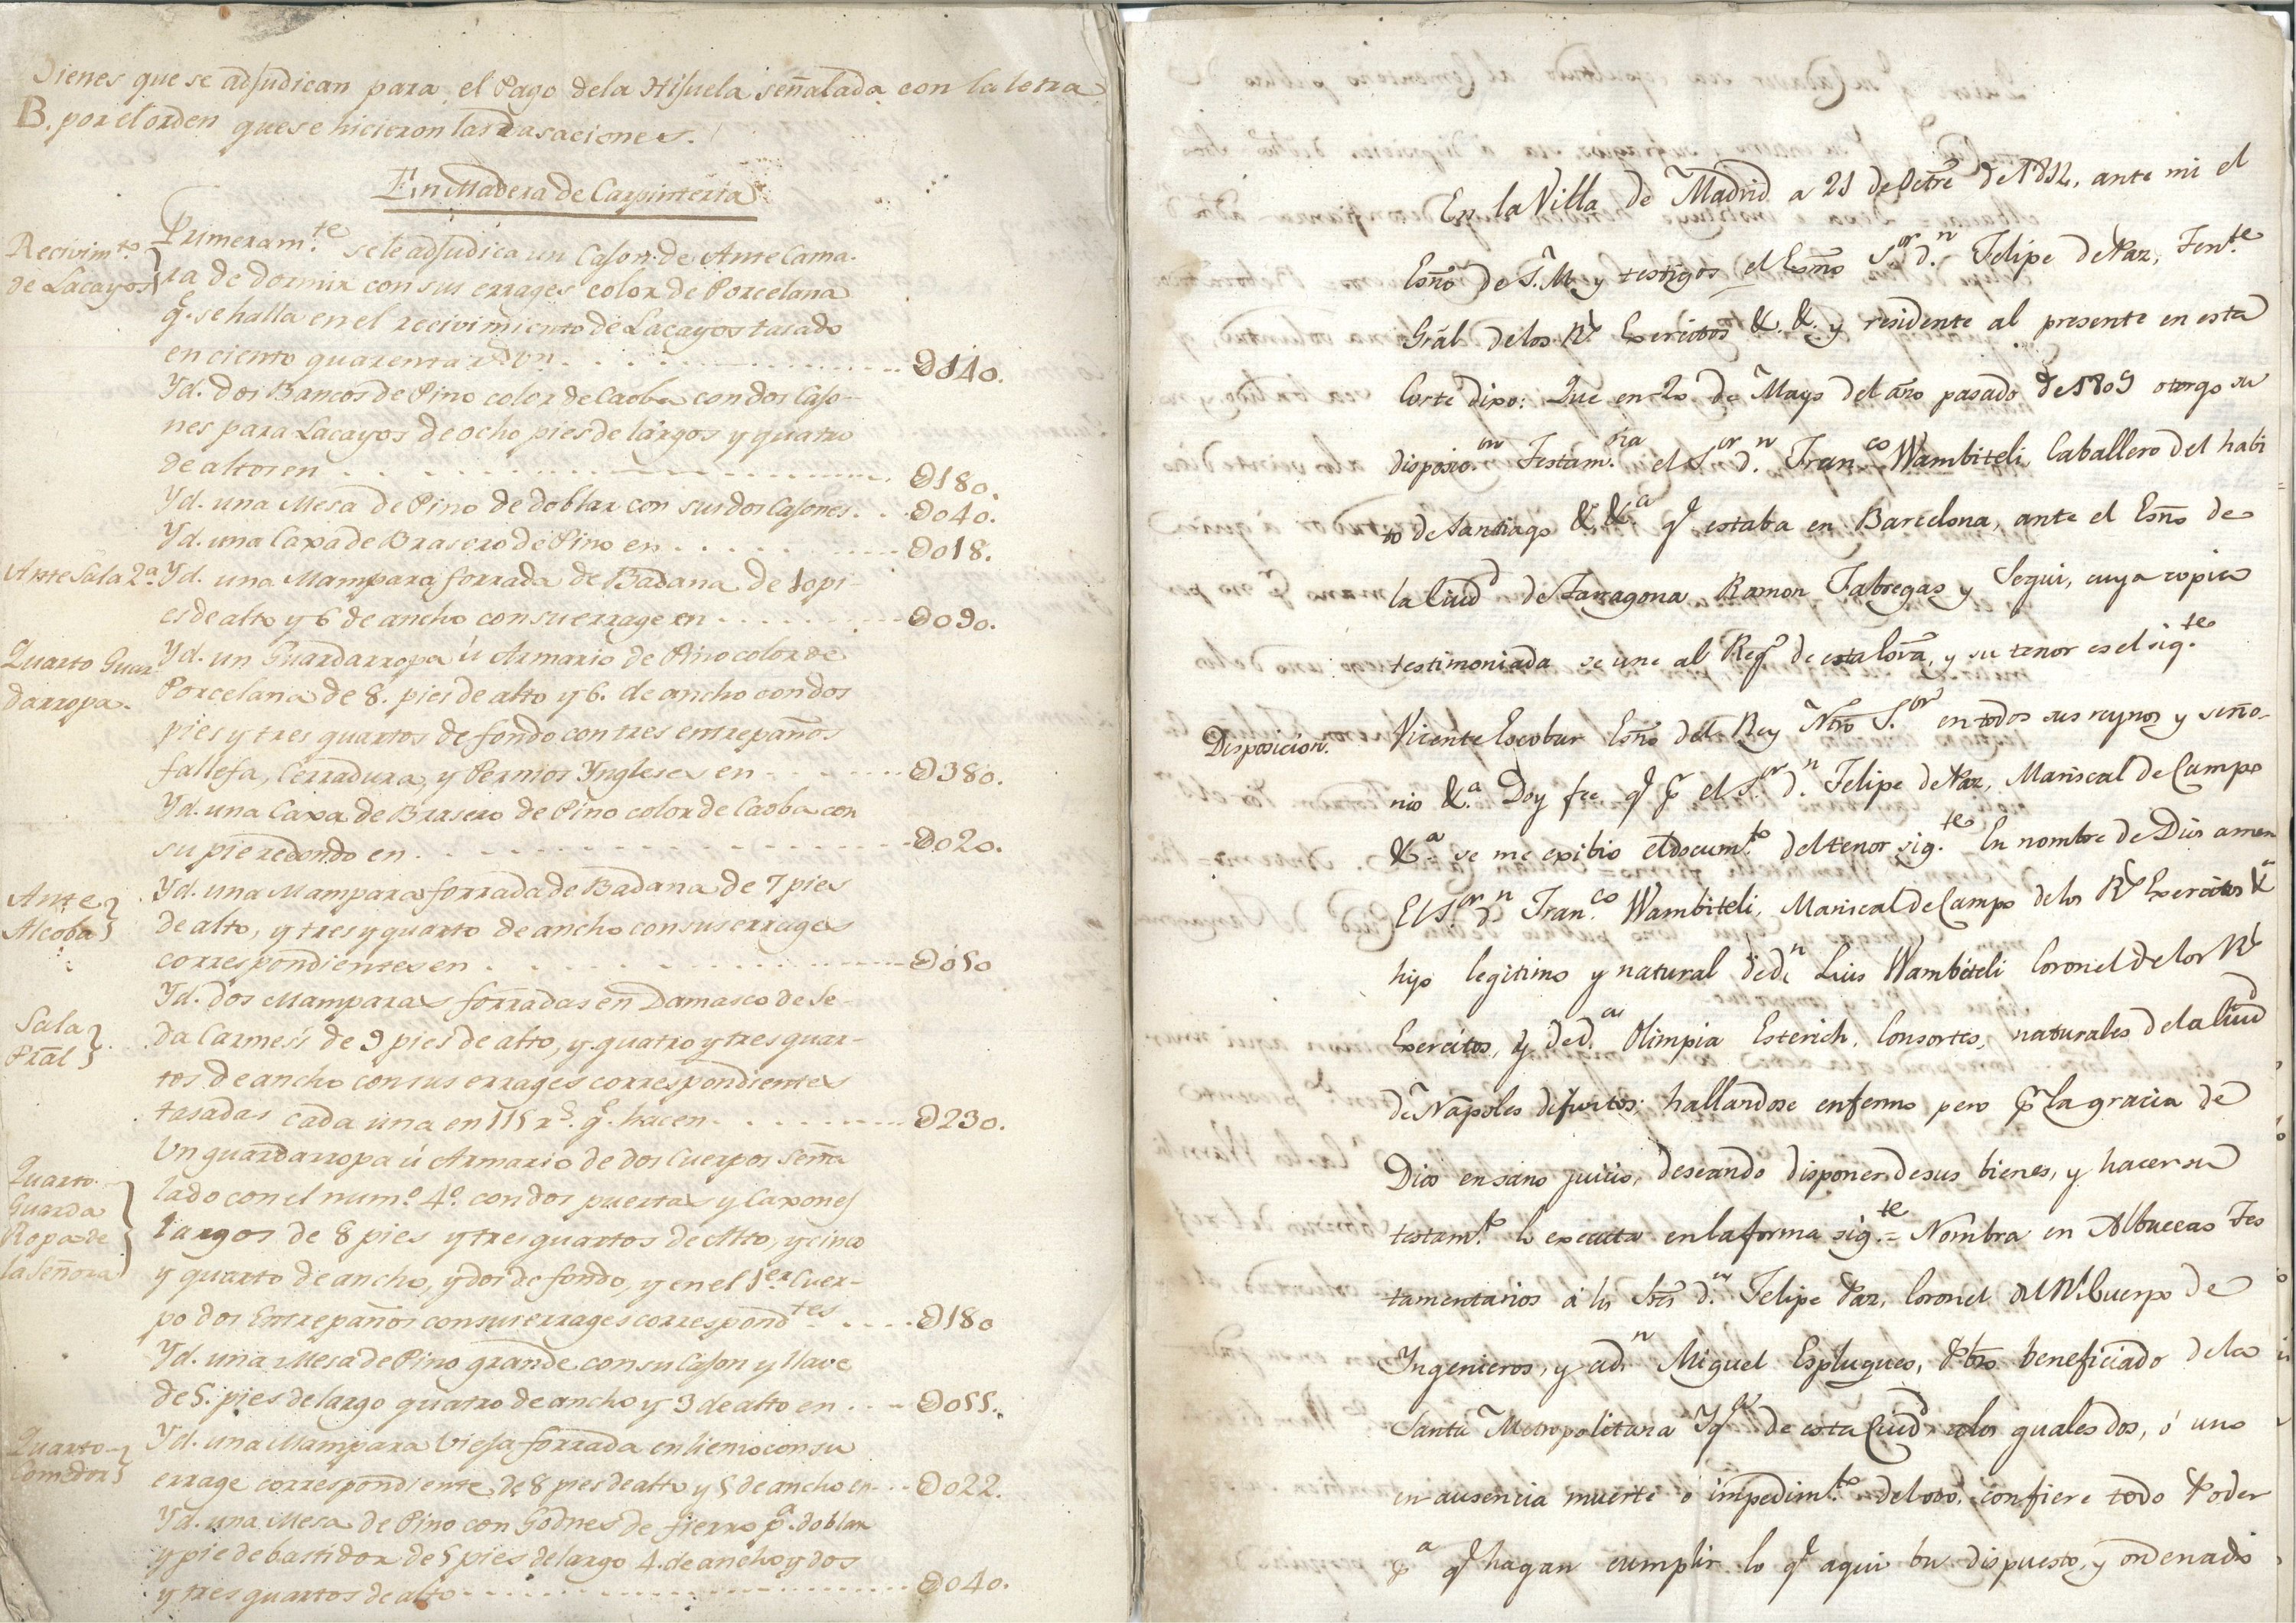 Bienes que se adjudican para el Pago dela Hijuela señalada con la letra
B. por el orden que se hicieron las tasaciones.
En Madera de Carpinteria
Recivim.to
de Lacayos
Primeram.te se le adjudica un Cajon de Ante Cama-
ra de dormir con sus errages color de Porcelana
q.e se halla en el recivimiento de Lacayos tasado
en ciento quarenta r.s v.n - - - D140.
Yd. dos Bancos de Pino color de Caoba con dos Cajo-
nes para Lacayos de ocho pies de largos y quatro
de altos en - - - D180.
Yd. una Mesa de Pino de doblar con sus dos Cajones. - - D040.
Yd. una Caxa de Brasero de Pino en - - - D018.
Ante Sala 2.a
Yd. una Mampara forrada de Badana de 10 pi-
es de alto y 6 de ancho con su errage en - - - D090.
Quarto Guar
darropa.
Yd. un Guardarropa ú Armario de Pino color de
Porcelana de 8. pies de alto y 6. de ancho con dos
pies y tres quartos de fondo con tres entrepaños
falleja, Cerradura, y Pernios Yngleses en - - - D380.
Yd. una Caxa de Brasero de Pino color de Caoba con
su pie redondo en - - - D020.
Ante
Alcoba
Yd. una Mampara forrada de Badana de 7 pies
de alto, y tres y quarto de ancho con sus errages
correspondientes en - - - D050
Sala
Pral
Yd. dos Mamparas forradas en Damasco de Se-
da Carmesi de 9 pies de alto, y quatro y tres quar-
tos de ancho con sus errages correspondientes
tasadas cada una en 115 r.s q.e hacen - - - D230.
Quarto
Guarda
Ropa de
la Señora
Un guardarropa ú Armario de dos Cuerpos Seña
lado con el num.o 4.o con dos puertas y Caxones
largos de 8 pies y tres quartos de Alto, y cinco
y quarto de ancho, y dos de fondo, y en el 1.er Cuer-
po dos Entrepaños con sus errages correspond.tes - - - D180
Yd. una Mesa de Pino grande con su Cajon y llave
de 5. pies de largo quatro de ancho y 3 de alto en - - - D055.
Quarto
Comedor
Yd. una Mampara vieja forrada en lienzo con su
errage correspondiente de 8 pies de alto y 5 de ancho en - - D022.
Yd. una Mesa de Pino con Godnes de fierro p.a doblar
y pie de bastidor de 5 pies de largo 4. de ancho y dos
y tres quartos de alto - - - D040.
En la Villa de Madrid a 21 de Octre de 1814, ante mi el
Esño de S. M. y testigos el Esmo S.or d.n Felipe de Paz, Ten.te
Gral de los R.s Exercitos &. &. y residente al presente en esta
Corte dixo: Que en 20 de Mayo del año pasado de 1809 otorgo su
disposic.on Testam.ria el S.or d.n Fran.co Wambiteli, Caballero del habi
to de Santiago &.&.a q.e estaba en Barcelona, ante el Esño de
la Ciud.d de Tarragona Ramon Fabregas y Segui, cuya copia
testimoniada se une al Reg.o de esta Escra, y su tenor es el sig.te
Disposicion.
Vicente Escobar Esño del Rey Ntro S.or en todos sus reynos y seño-
rio &.a Doy fee q.e p.r el S.or d.n Felipe de Paz, Mariscal de Campo
&.a se me exibio el docum.to del tenor sig.te En nombre de Dios amen
El S.or d.n Fran.co Wambiteli, Mariscal de Campo de los R.s Exercitos &.a
hijo legitimo y natural de d.n Luis Wambiteli Coronel de los R.s
Exercitos, y de d.a Olimpia Esterich, Consortes, naturales de la Ciud.d
de Napoles difuntos: hallandose enfermo pero p.r la gracia de
Dios en sano juicio, deseando disponer de sus bienes, y hacer su
testam.to lo executa en la forma sig.te = Nombra en Albaceas Tes
tamentarios á los Sres d.n Felipe Paz, Coronel del R.l Cuerpo de
Ingenieros, y a d.n Miguel Esplugues, Pbro beneficiado de la
Santa Metropolitana Yg.a de esta Ciud.d a los quales dos, ó uno
en ausencia muerte ó impedim.to del otro, confiere todo Poder
p.a q.e hagan cumplir lo q.e aqui ba dispuesto, y ordenado